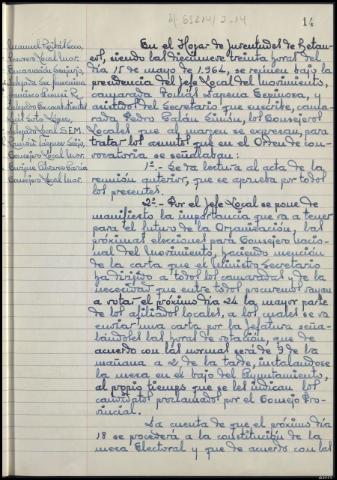 14
Manuel
Consejero Local Mov.
Encarnación
Consejero Local Mov.
Delegado Local S.E.M.
Consejero Local Mov.
Enrique Alvarez García
Consejero Local Mov.
En el Hogar de Juventudes de Betan-
siendo las diecinueve treinta horas del
día 15 de mayo de 1964, se reunen bajo la
presidencia del Jefe Local del Movimiento,
camarada Espinosa, y
asistidos del Secretario que escribe, cama-
rada Pedro Galán los Consejeros
Locales que al margen se expresan, para
tratar los asuntos que en el Orden de con-
vocatoria se señalaban:
1º.- Se da lectura al acta de la
reunión anterior, que es aprueba por todos
los presentes.
2º.- Por el Jefe Local se pone de
manifiesto la importancia que va a tener
para el futuro de la Organización, las
próximas elecciones para Consejero nacio-
nal del Movimiento, haciendo mención
de la carta que el Ministro Secretario
ha dirijido a todos los camaradas y de la
necesidad que entre todos procuremos vayan
a votar el próximo día 24 la mayor parte
de los afiliados locales, a los cuales se va
enviar una carta por la Jefatura seña-
landoles las horas de votación, que de
acuerdo con las normas será de 9 de la
mañana a 2 de la tarde, instalandose
la mesa en el bajo del Ayuntamiento,
al propio tiempo que se les indican los
candidatos proclamados por el Consejo Pro-
vincial.
Da cuenta de que el próximo día
18 se procederá a la constitución de la
mesa Electoral y que de acuerdo con las